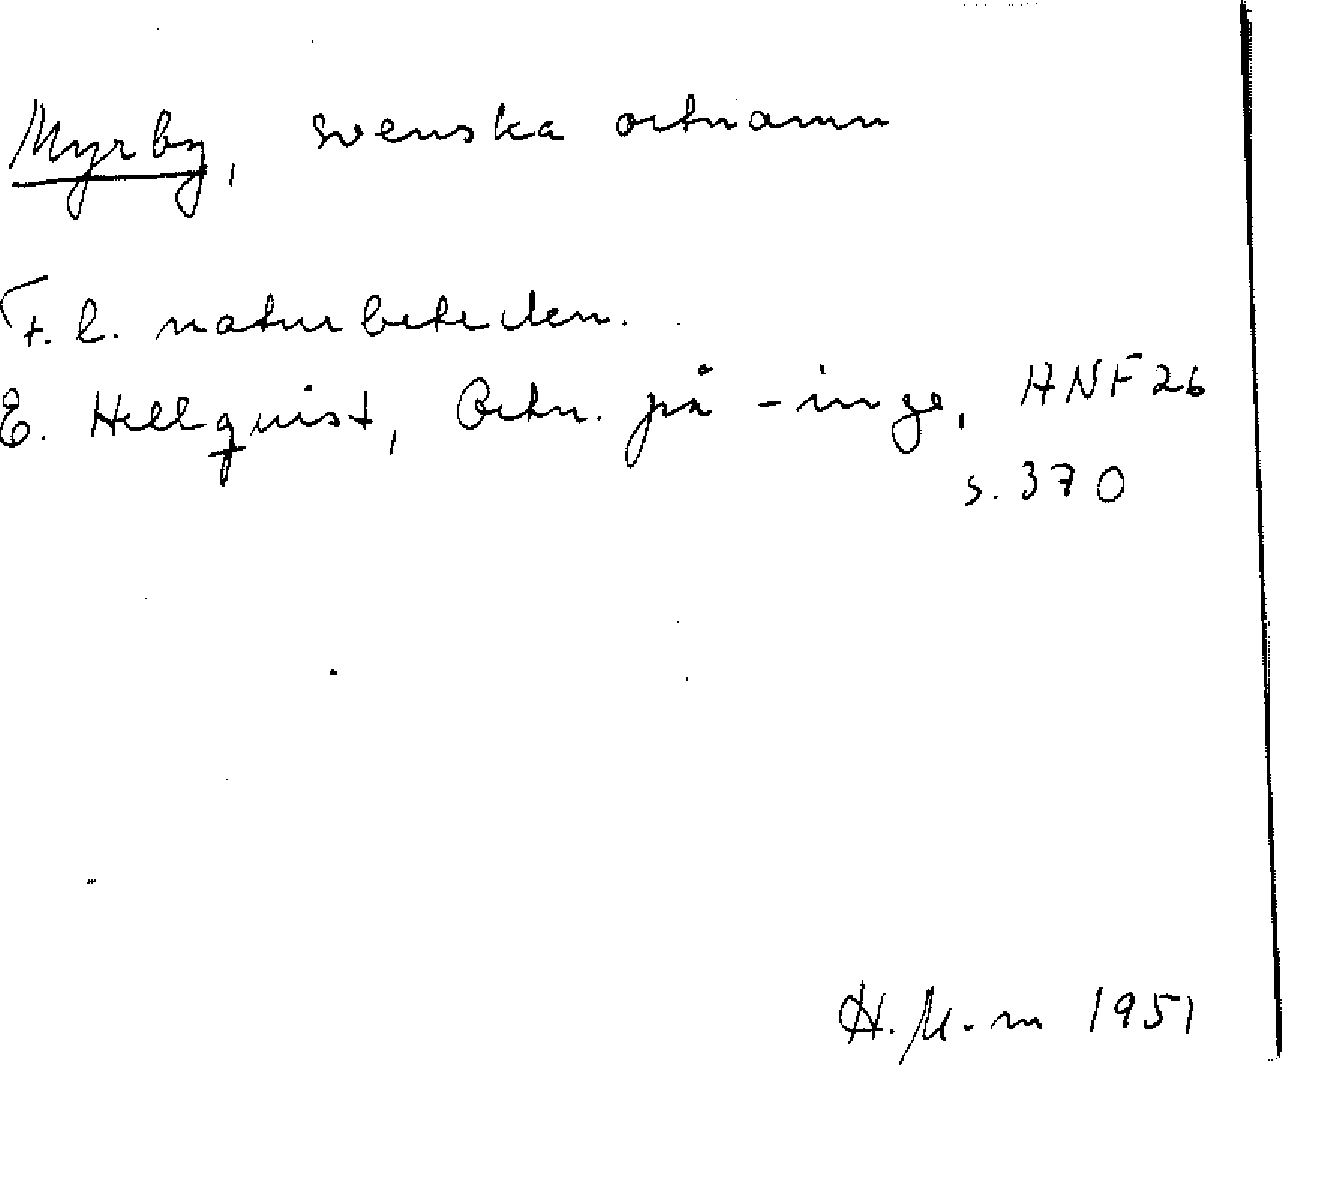 Myrby, svenska ortnamn
F.l. naturbeteckn.
E. Hellquist, Ortn. på -inge, ANF 26
s. 370
H. M-m 1951